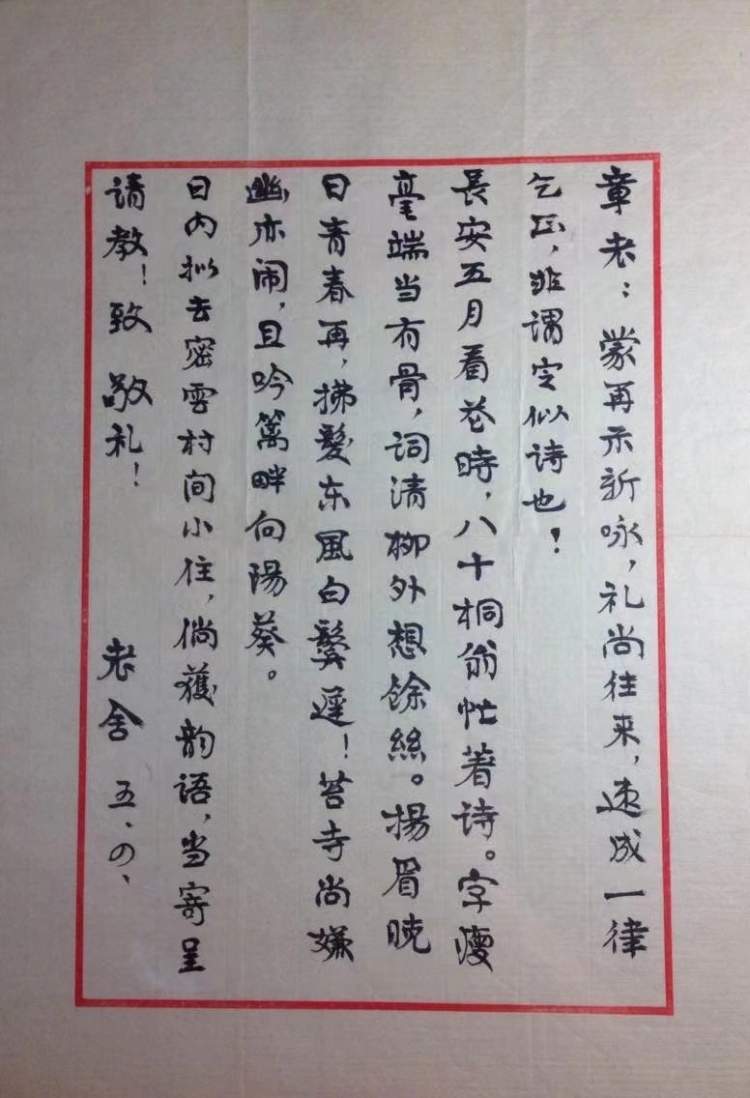 章老：蒙再示新咏，礼尚往来，速成一律
乞正，非谓定似诗也！
長安五月看花時，八十桐翁忙着诗。字瘦
毫端当有骨，词清柳外想馀絲。揚眉晓
日青春再，拂髮东風白鬓遲！苔寺尚嫌
幽亦闹，且吟篱畔向陽葵。
日内拟去密雲村间小住，倘獲韵语，当寄呈
请教！致 敬礼！
老舍 五、の、